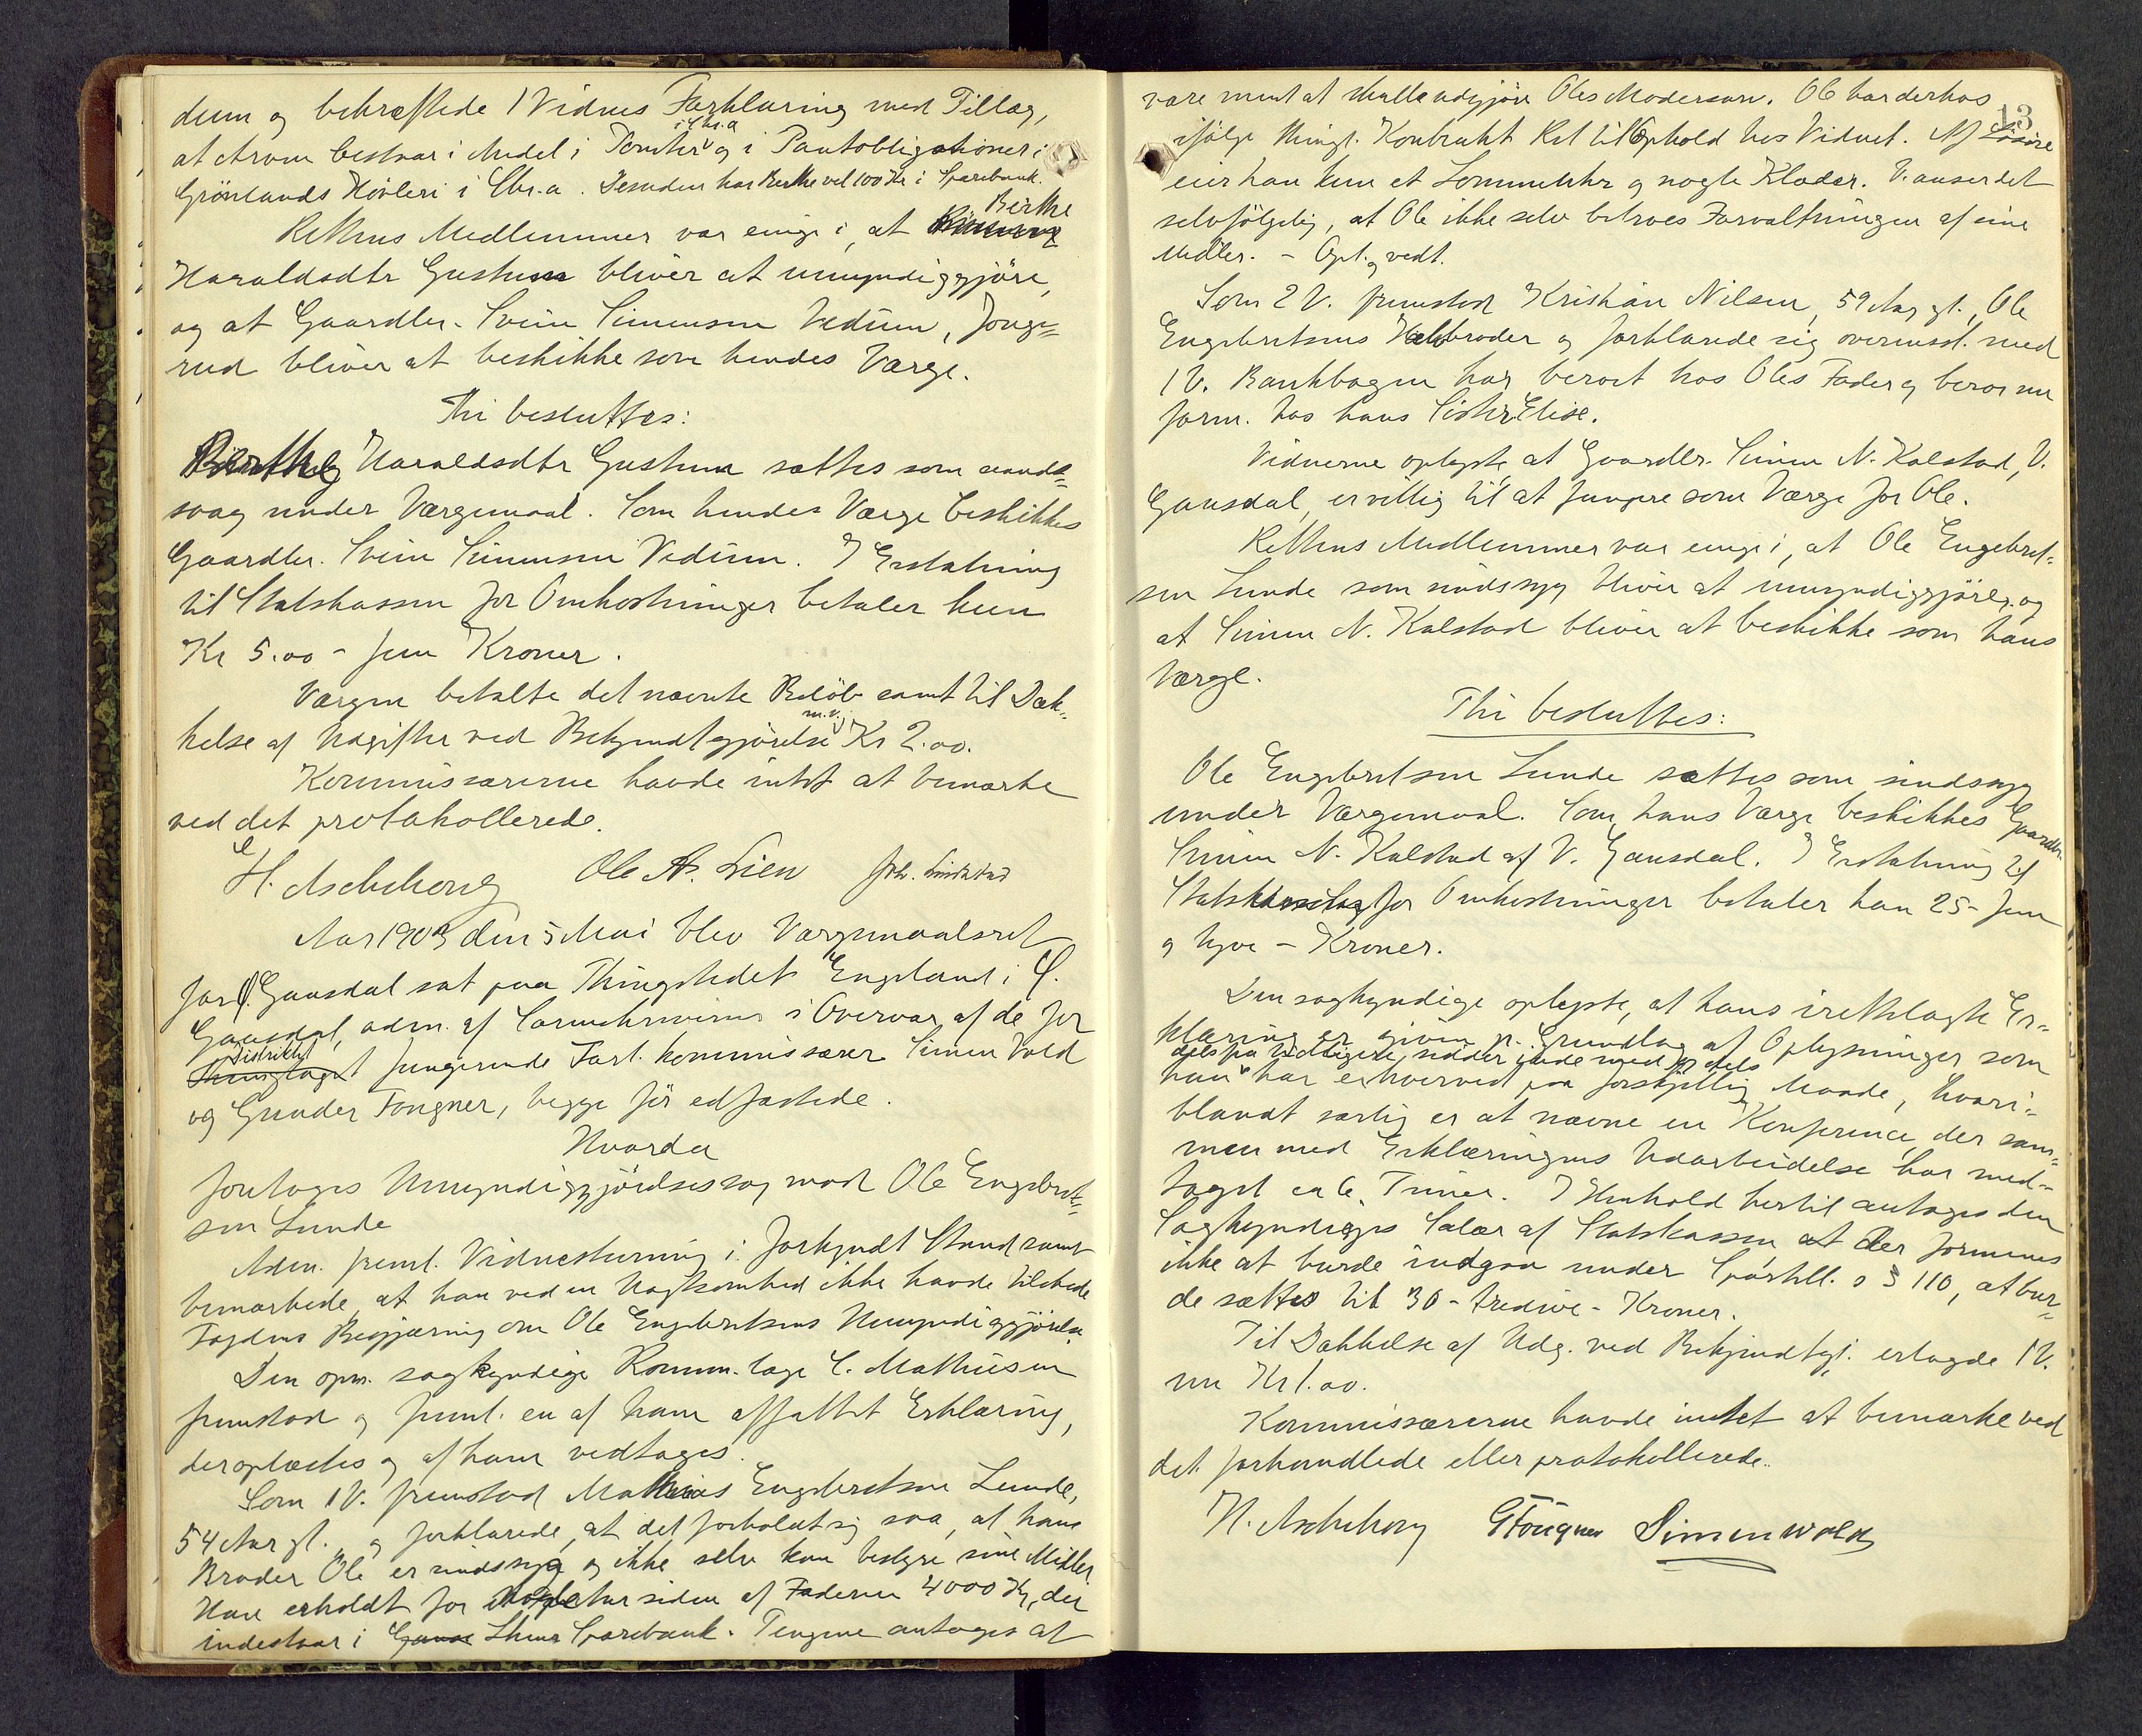 deum og bekræftede 1 Vidnes Forklaring med Tillæg,
at Arven bestaar i Andel i Tomter i Chr.a og i Pantobligationer i
Grönlands Hövleri i Chr.a. Desuden har Berthe vel 100 Kr i Sparebank.
Rettens Medlemmer var enige i, at Birthe
Haraldsdtr Gustum bliver at umyndiggjöre,
og at Gaardbr. Svein Simensen Vedum, Jonge=
rud bliver at beskikke som hendes Værge.
Thi besluttes:
Berthe Haraldsdtr Gustum sættes som aands=
svag under Værgemaal. Som hendes Værge beskikkes
Gaardbr. Svein Simensen Vedum. I Erstatning
til Statskassen for Omkostninger betaler hun
Kr 5.00 - fem Kroner.
Værgen betalte det nævnte Belöb samt til Dæk=
kelse af Udgifter ved Bekjendtgjörelse m.v. Kr 2.00.
Kommissærerne havde intet at bemærke
ved det protokollerede.
H. Aschehoug Ole A. Lien Joh.
Aar 1903 den 5 Mai blev Værgemaalsret
for Ø. Gausdal sat paa Thingstedet Engeland i Ø.
Gausdal, adm. af Sorenskriveren i Overvær af de for
Distriktet Thinglaget fungerende Forl.kommissærer Simen Vold
og Gunder Fougner, begge för edfæstede.
Hvorda
foretoges Umyndiggjörelsessag mod Ole Engebret=
sen Lunde
Adm. freml. Vidnestevning i forkyndt Stand samt
bemærkede, at han ved en Uagtsomhed ikke havde tilstede
Fogdens Begjæring om Ole Engebretsens Umyndiggjörelse.
Den opn. sagkyndige Komm.læge C. Mathiesen
fremstod og freml. en af ham affattet Erklæring,
der oplæstes og af ham vedtages.
Som 1 V. fremstod Mathias Engebretsen Lunde,
54 Aar gl., og forklarede, at det forholdt sig saa, at hans
Broder Ole er sindssyg og ikke selv kan bestyre sine Midler
Han erholdt for nogle Aar siden af Faderen 4000 Kr, der
indestaar i Gausd Sparebank. Pengene antoges at
13
være ment at skulle udgjöre Oles Modersarv. Ole har derhos
ifölge thingl. Kontrakt Ret til Ophold hos Vidnet. Af Lösöre
eier han kun et Lommeuhr og nogle Klæder. V. anser det
selvfölgelig, at Ole ikke selv betroes Forvaltningen af sine
Midler. - Opl. og vedt.
Som 2 V. fremstod Kristian Nilsen, 59 Aar gl., Ole
Engebretsens Halvbroder og forklarede sig overensst. med
1 V. Bankbogen har beroet hos Oles Fader og beror nu
form. hos hans Söster Elise.
Vidnerne oplyste, at Gaardbr. Simen N. Kalstad, V.
Gausdal, er villig til at fungere som Værge for Ole.
Rettens Medlemmer var enige i, at Ole Engebret=
sen Lunde som sindssyg bliver at umyndiggjöre, og
at Simen N. Kalstad bliver at beskikke som hans
Værge.
Thi besluttes:
Ole Engebretsen Lunde sættes som sindssyg
under Værgemaal. Som hans Værge beskikkes Gaardbr.
Simen N. Kalstad af V. Gausdal. I Erstatning til
Statskassen for Omkostninger betaler han 25 - fem
og tyve - Kroner.
Den sagkyndige oplyste, at hans irettelagte Er=
klæring er given p. Grundlag af Oplysninger som
han dels paa har erhvervet paa forskjellig Maade, hvori=
blandt særlig er at nævne en Konference, der sam=
men med Erklæringens Udarbeidelse har med=
taget ca 6 Timer. I Henhold hertil antoges den
Sagkyndiges Salær af Statskassen, at der formenes
ikke at burde indgaa under Sportell. s § 110, at bur=
de sættes til 30 - tredive - Kroner.
Til Dækkelse af Udg. ved Bekjendtgj. erlagde 1 V.
nu Kr 1.00.
Kommissærerne havde intet at bemærke ved
det forhandlede eller protokollerede.
H. Aschehoug G Fougner Simen Wold